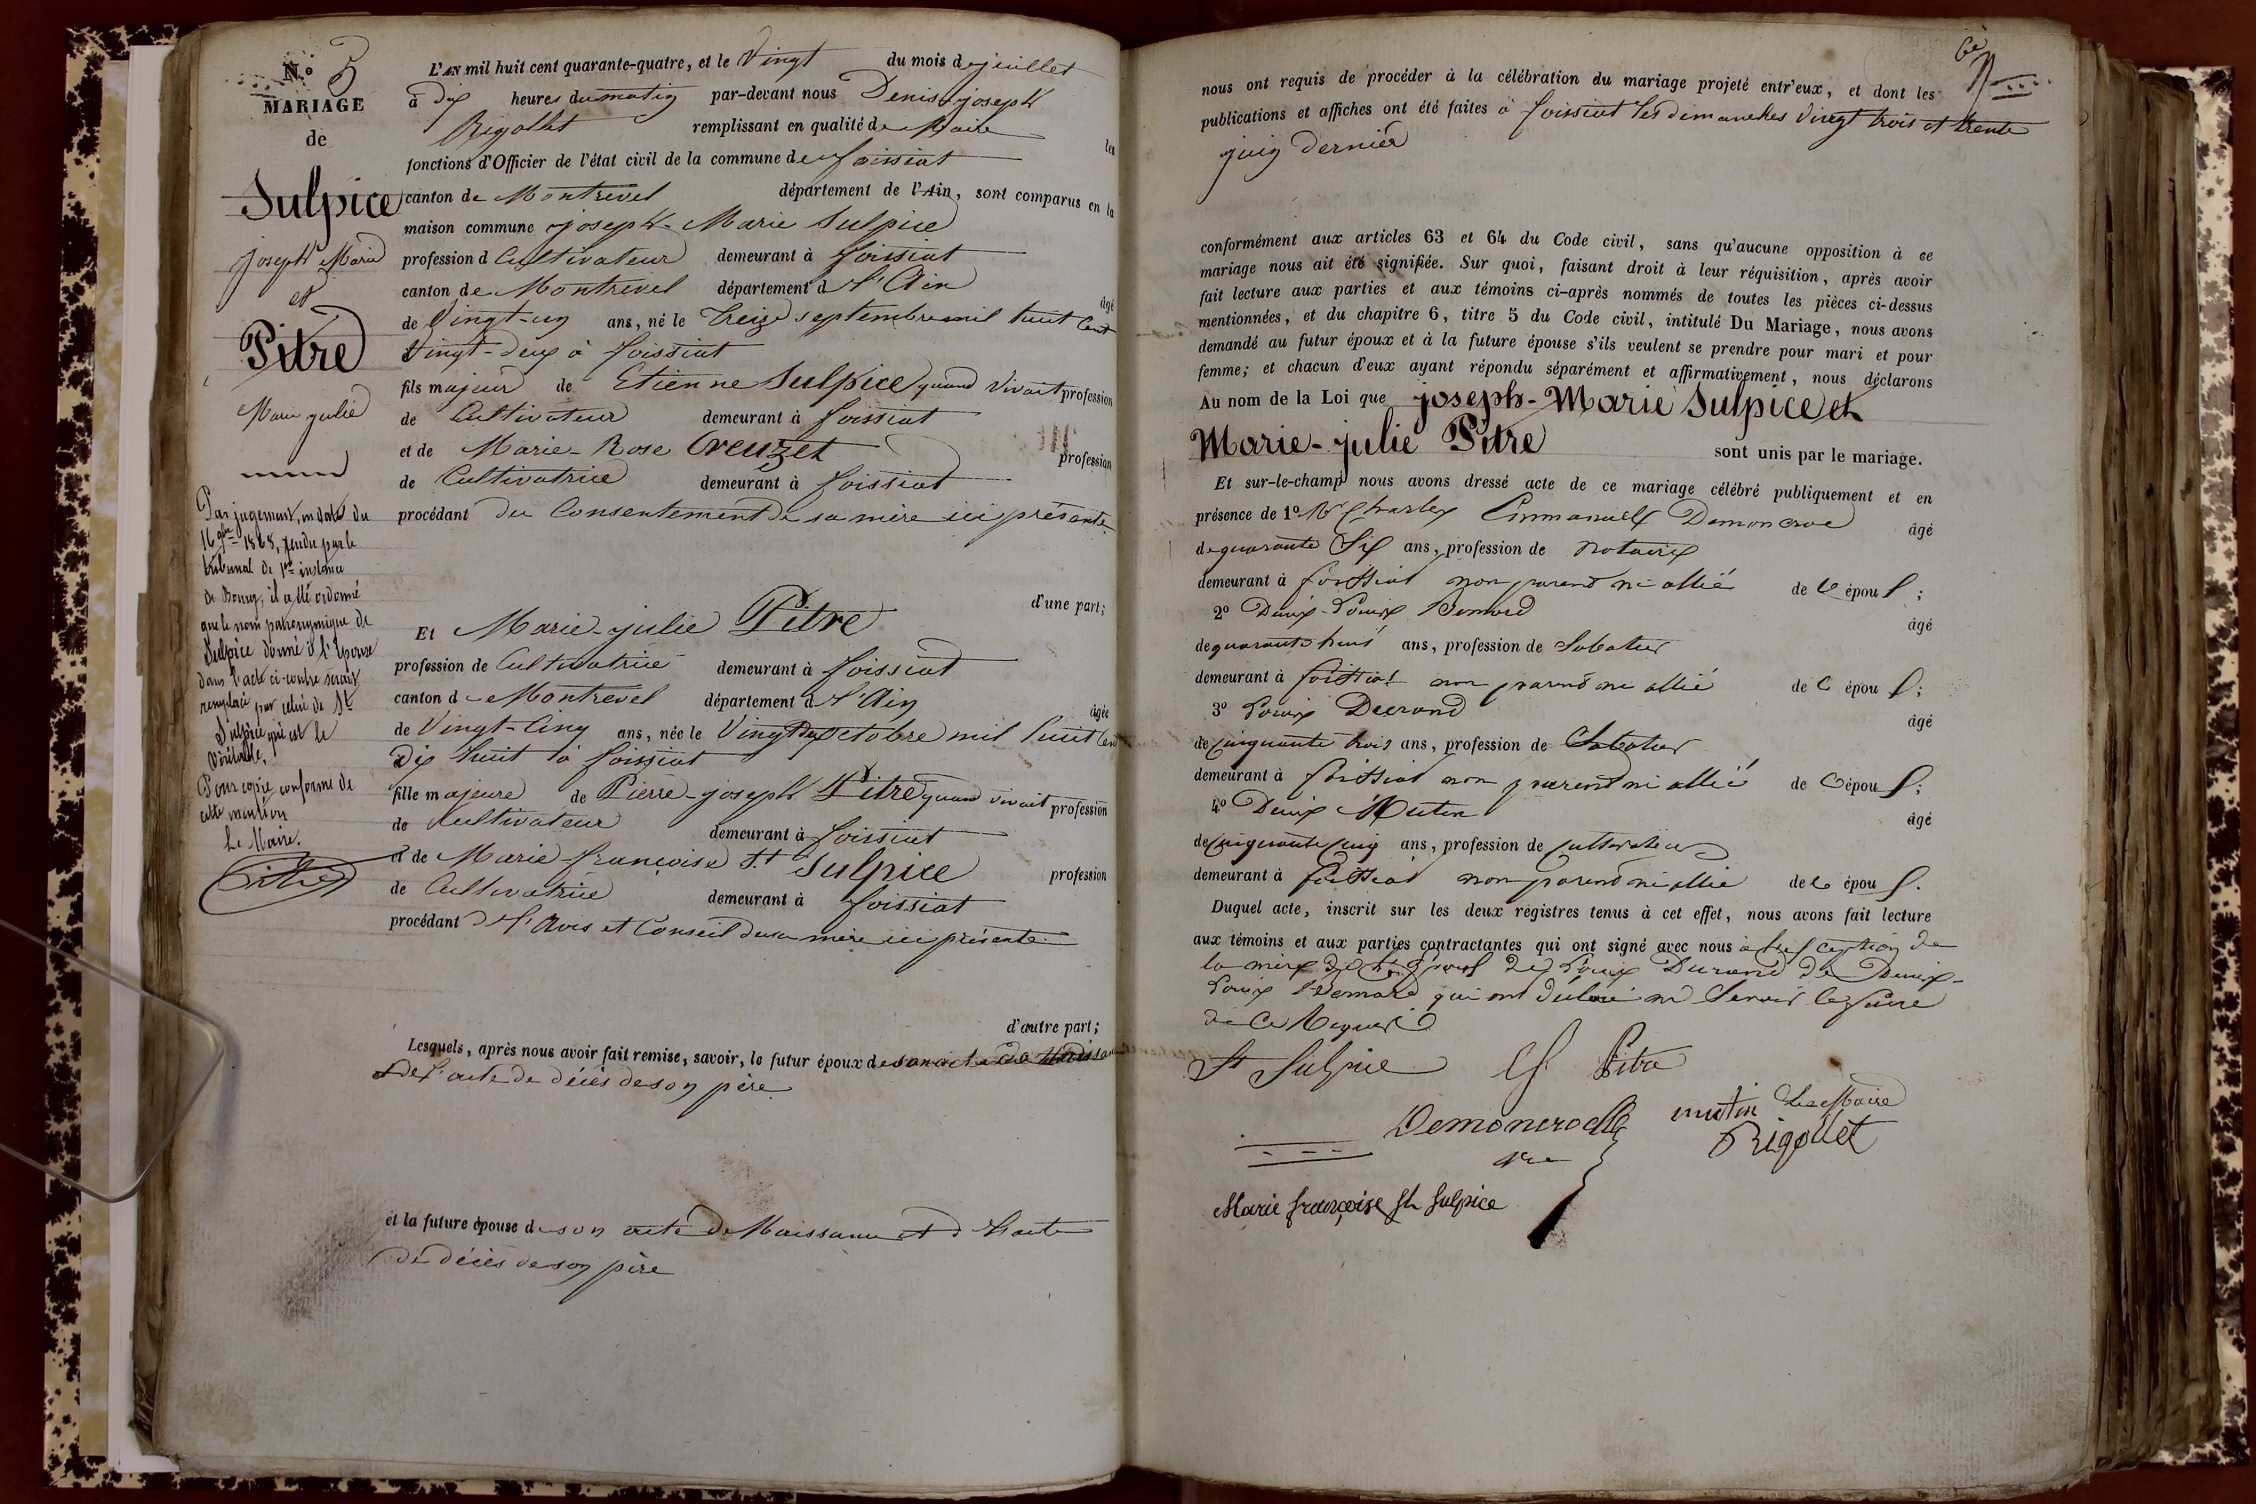 N.o 5
MARIAGE
de
Sulpice
Joseph Marie
et
Pitre
Marie julie
Par jugement, en date du
16 9bre 1868, rendu par le
tribunal de 1re instance
de Bourg, il a été ordonné
que le nom patronymique de
Sulpice donné à l'Epoux
dans l'acte ci-contre serait
remplacé par celui de St
Sulpice qui est le
véritable.
Pour copie conforme de
cette mention
Le Maire.
Pitre
L'AN mil huit cent quarante-quatre, et le Vingt du mois de juillet
à dix heures du matin par-devant nous Denis-joseph
Rigollet remplissant en qualité de Maire les
fonctions d'Officier de l'état civil de la commune de foissiat
canton de Montrevel département de l'Ain, sont comparus en la
maison commune joseph-Marie Sulpice
profession d Cultivateur demeurant à foissiat
canton de Montrevel département d l'Ain âgé
de Vingt-un ans, né le treize septembre mil huit Cent
Vingt-deux à foissiat
fils majeur de Etienne Sulpice quand vivait profession
de Cultivateur demeurant à foissiat
et de Marie-Rose Creuzet profession
de Cultivatrice demeurant à foissiat
procédant du Consentement de sa mère ici présente
d'une part;
Et Marie-julie Pitre
profession de Cultivatrice demeurant à foissiat
canton d e Montrevel département d l'Ain âgée
de Vingt-Cinq ans, née le Vingt octobre mil huit Cent
Dix huit à foissiat
fille majeure de Pierre-joseph Pitre quand vivait profession
de Cultivateur demeurant à foissiat
et de Marie-françoise St Sulpice profession
de Cultivatrice demeurant à foissiat
procédant d l'avis et Conseil de sa mère ici présente
d'autre part;
Lesquels, après nous avoir fait remise, savoir, le futur époux de son acte de
et de l'acte de décès de son père
et la future épouse de son acte de Naissance et d l'acte
de décès de son père
6e
nous ont requis de procéder à la célébration du mariage projeté entr'eux, et dont les
publications et affiches ont été faites à foissiat les dimanches Vingt trois et trente
juin dernier
conformément aux articles 63 et 64 du Code civil, sans qu'aucune opposition à ce
mariage nous ait été signifiée. Sur quoi, faisant droit à leur réquisition, après avoir
fait lecture aux parties et aux témoins ci-après nommés de toutes les pièces ci-dessus
mentionnées, et du chapitre 6, titre 5 du Code civil, intitulé Du Mariage, nous avons
demandé au futur époux et à la future épouse s'ils veulent se prendre pour mari et pour
femme; et chacun d'eux ayant répondu séparément et affirmativement, nous déclarons
Au nom de la Loi que joseph-Marie Sulpice et
Marie-julie Pitre sont unis par le mariage.
Et sur-le-champ nous avons dressé acte de ce mariage célébré publiquement et en
présence de 1o Mr Charles Emmanuel Demoncroc âgé
de quarante Six ans, profession de Notaire
demeurant à foissiat non parent ni allié de l' épou x ;
2o Denis-Louis Bernard âgé
de quarante huit ans, profession de Sabotier
demeurant à foissiat non parent ni allié de l' épou x ;
3o Louis Durand âgé
de Cinquante trois ans, profession de Sabotier
demeurant à foissiat non parent ni allié de l' épou x ;
4o Denis Mutin âgé
de Cinquante Cinq ans, profession de Cultivateur
demeurant à foissiat non parent ni allié de l' épou x .
Duquel acte, inscrit sur les deux régistres tenus à cet effet, nous avons fait lecture
aux témoins et aux parties contractantes qui ont signé avec nous à l'exception de
la mère de l'époux de Louis Durand de Denis-
Louis Bernard qui ont déclaré ne Savoir le faire
de Ce Requis
St Sulpice Pitre
Demoncroc mutin Le Maire
Rigollet
Marie françoise St Sulpice